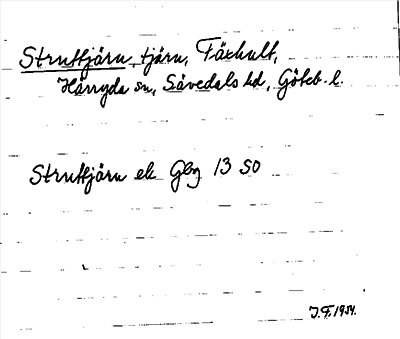 Struttjärn, tjärn, Fäxhult,
Härryda sn, Sävedals hd, Göteb. l.
Struttjärn ek Gbg 13 SO
J.F. 1934.